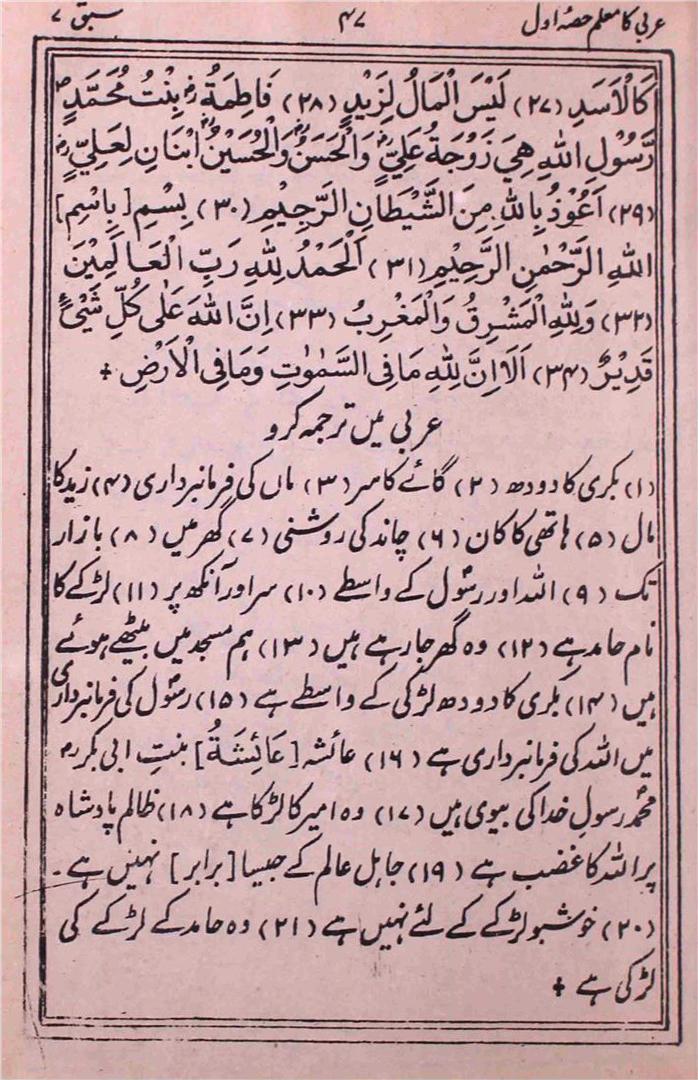 عربی کا معلم حصہ اول ۴۷ سبق ۷
كَالْاَسَدِ (۲۷) لَيْسَ الْمَالُ لِزَيْدٍ (۲۸) فَاطِمَةُ رض بِنْتُ مُحَمَّدٍ ص
رَّسُوْلِ اللهِ هِيَ زَوْجَةُ عَلِيٍّ رض وَالْحَسَنُ رض وَالْحُسَيْنُ رض ابْنَانِ لِعَلِيٍّ رض
(۲۹) اَعُوْذُ بِاللهِ مِنَ الشَّيْطَانِ الرَّجِيْمِ (۳۰) بِسْمِ [بِاسْمِ]
اللهِ الرَّحْمٰنِ الرَّحِيْمِ (۳۱) اَلْحَمْدُ لِلهِ رَبِّ الْعَالَمِيْنَ
(۳۲) وَلِلهِ الْمَشْرِقُ وَالْمَغْرِبُ (۳۳) اِنَّ اللهَ عَلٰى كُلِّ شَيْئٍ
قَدِيْرٌ (۳۴) اَلَا اِنَّ لِلهِ مَا فِى السَّمٰوٰتِ وَمَا فِى الْاَرْضِ +
عربی میں ترجمہ کرو
(۱) بکری کا دودھ (۲) گائے کا سر (۳) ماں کی فرمانبرداری (۴) زید کا
مال (۵) ہاتھی کا کان (۶) چاند کی روشنی (۷) گھر میں (۸) بازار
تک (۹) اللہ اور رسولؐ کے واسطے (۱۰) سر اور آنکھ پر (۱۱) لڑکے کا
نام حامد ہے (۱۲) وہ گھر جا رہے ہیں (۱۳) ہم مسجد میں بیٹھے ہوئے
ہیں (۱۴) بکری کا دودھ لڑکی کے واسطے ہے (۱۵) رسولؐ کی فرمانبرداری
میں اللہ کی فرمانبرداری ہے (۱۶) عائشہ [عَائِشَةُ] بنتِ ابی بکر رض
محمدؐ رسولِ خدا کی بیوی ہیں (۱۷) وہ امیر کا لڑکا ہے (۱۸) ظالم پادشاہ
پر اللہ کا غضب ہے (۱۹) جاہل عالم کے جیسا [برابر] نہیں ہے۔
(۲۰) خوشبو لڑکے کے لئے نہیں ہے (۲۱) وہ حامد کے لڑکے کی
لڑکی ہے +